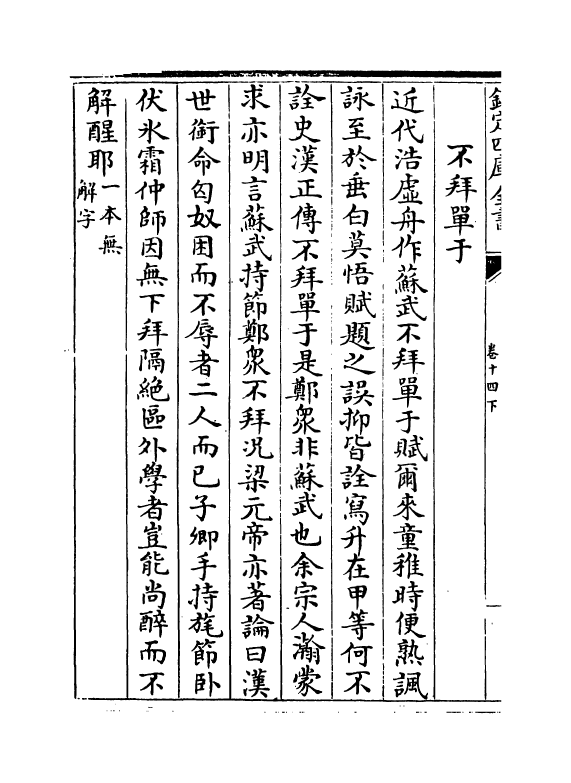 欽定四庫全書
卷十四下
不拜單于
近代浩虛舟作蘇武不拜單于賦爾來童稚時便熟諷
詠至於垂白莫悟賦題之誤抑皆詮寫升在甲等何不
詮史漢正傳不拜單于是鄭衆非蘇武也余宗人瀚蒙
求亦明言蘇武持節鄭衆不拜况梁元帝亦著論曰漢
世銜命匈奴困而不辱者二人而已子卿手持旄節卧
伏氷霜仲師因無下拜隔絶區外學者豈能尚醉而不
解醒耶一本無解字